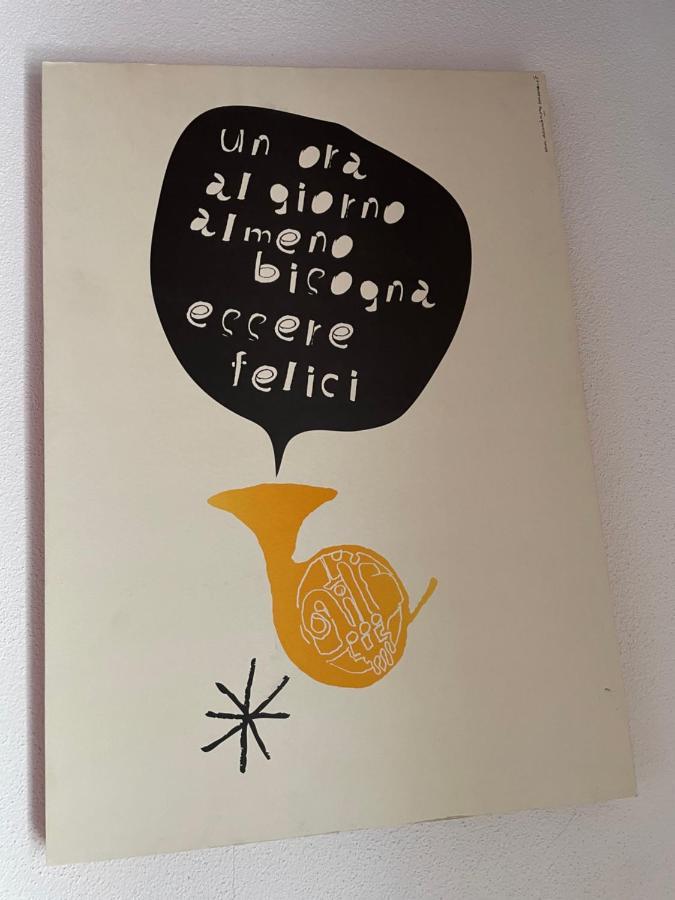 un ora
al giorno
almeno
bisogna
essere
felici